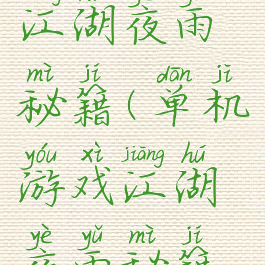 江湖夜雨
mì jí dān jī
秘籍(单机
yóu xì jiāng hú
游戏江湖
yè yǔ mì jí
夜雨秘籍